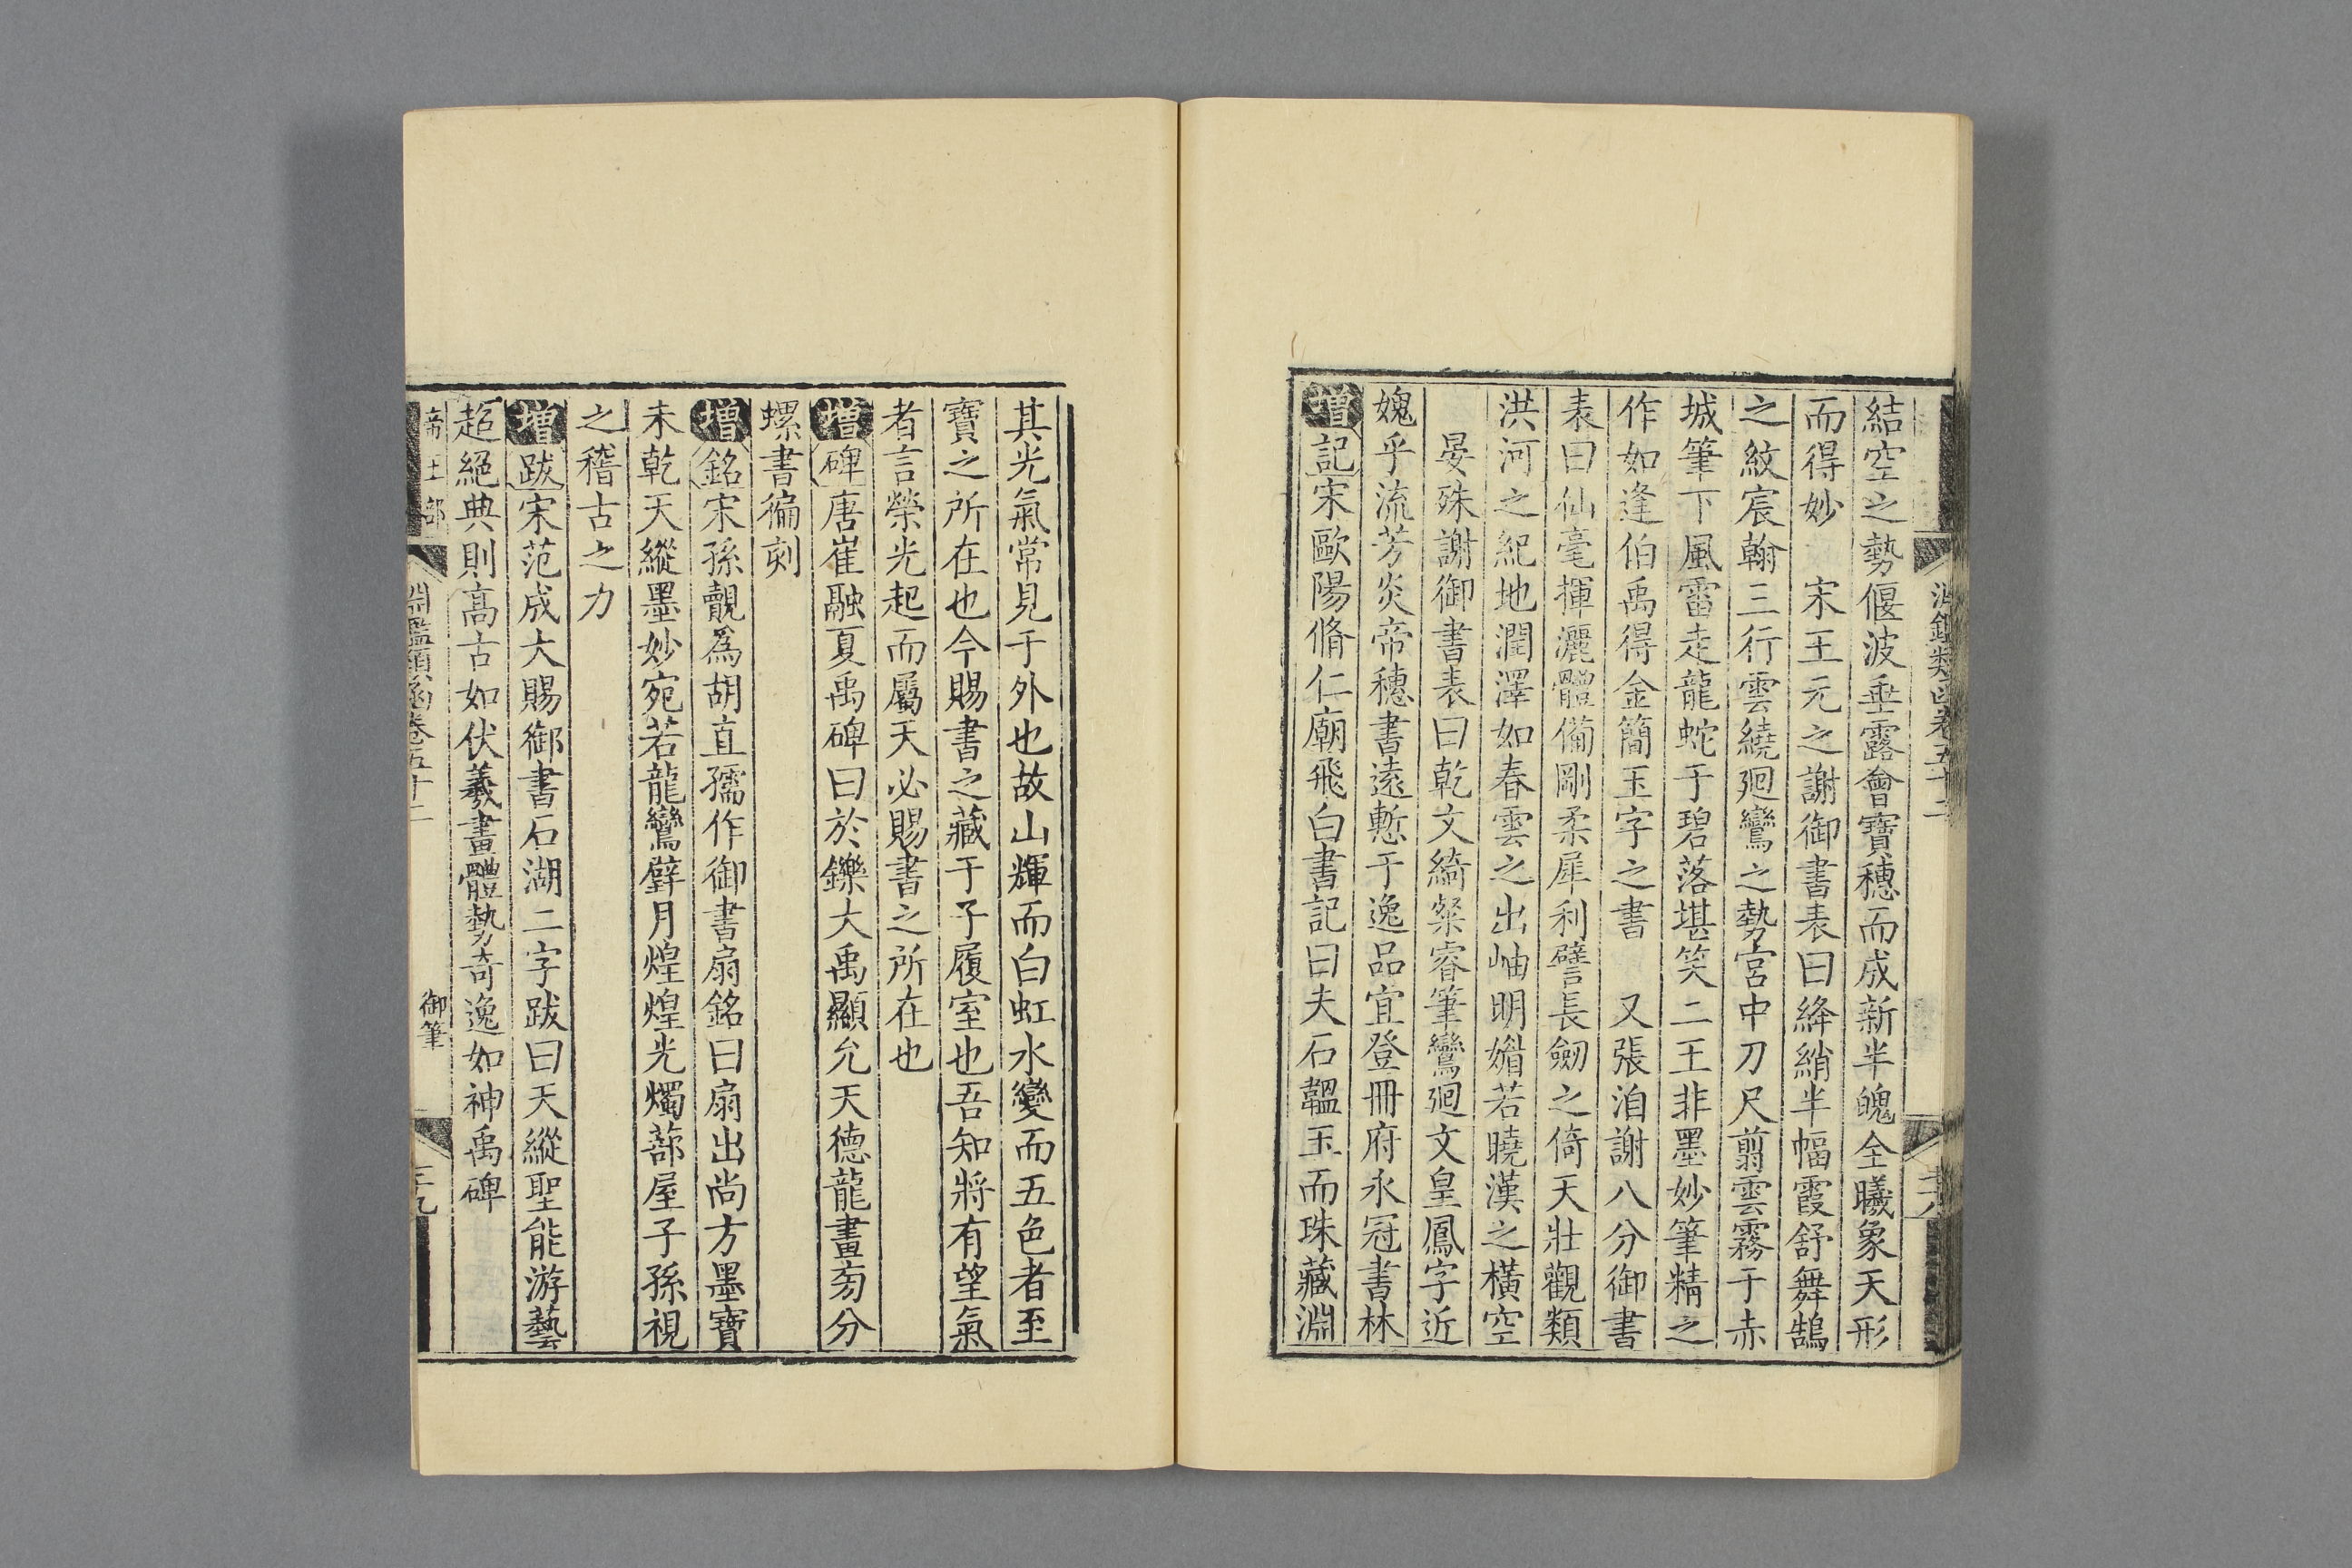 淵鑑類函卷五十二
結空之勢偃波垂露會寶穗而成新半魄全曦象天形
而得妙 宋王元之謝御書表曰絳綃半幅霞舒舞鵠
之紋宸翰三行雲繞廻鸞之勢宮中刀尺翦雲霧于赤
城筆下風雷走龍蛇于碧落堪笑二王非墨妙筆精之
作如逢伯禹得金簡玉字之書 又張洎謝八分御書
表曰仙毫揮灑體備剛柔犀利譬長劒之倚天壯觀類
洪河之紀地潤澤如春雲之出岫明媚若曉漢之橫空
晏殊謝御書表曰乾文綺粲睿筆鸞廻文皇鳳字近
媿乎流芳炎帝穗書遠慙于逸品宜登冊府永冠書林
增記宋歐陽脩仁廟飛白書記曰夫石韞玉而珠藏淵
其光氣常見于外也故山輝而白虹水變而五色者至
寶之所在也今賜書之藏于子履室也吾知將有望氣
者言榮光起而屬天必賜書之所在也
增碑唐崔融夏禹碑曰於鑠大禹顯允天德龍畫芴分
螺書徧刻
增銘宋孫覿爲胡直孺作御書扇銘曰扇出尚方墨寶
未乾天縱墨妙宛若龍鸞璧月煌煌光燭蔀屋子孫視
之稽古之力
增跋宋范成大賜御書石湖二字跋曰天縱聖能游藝
超絕典則高古如伏羲畫體勢奇逸如神禹碑
帝王部 淵鑑類函卷五十二 御筆